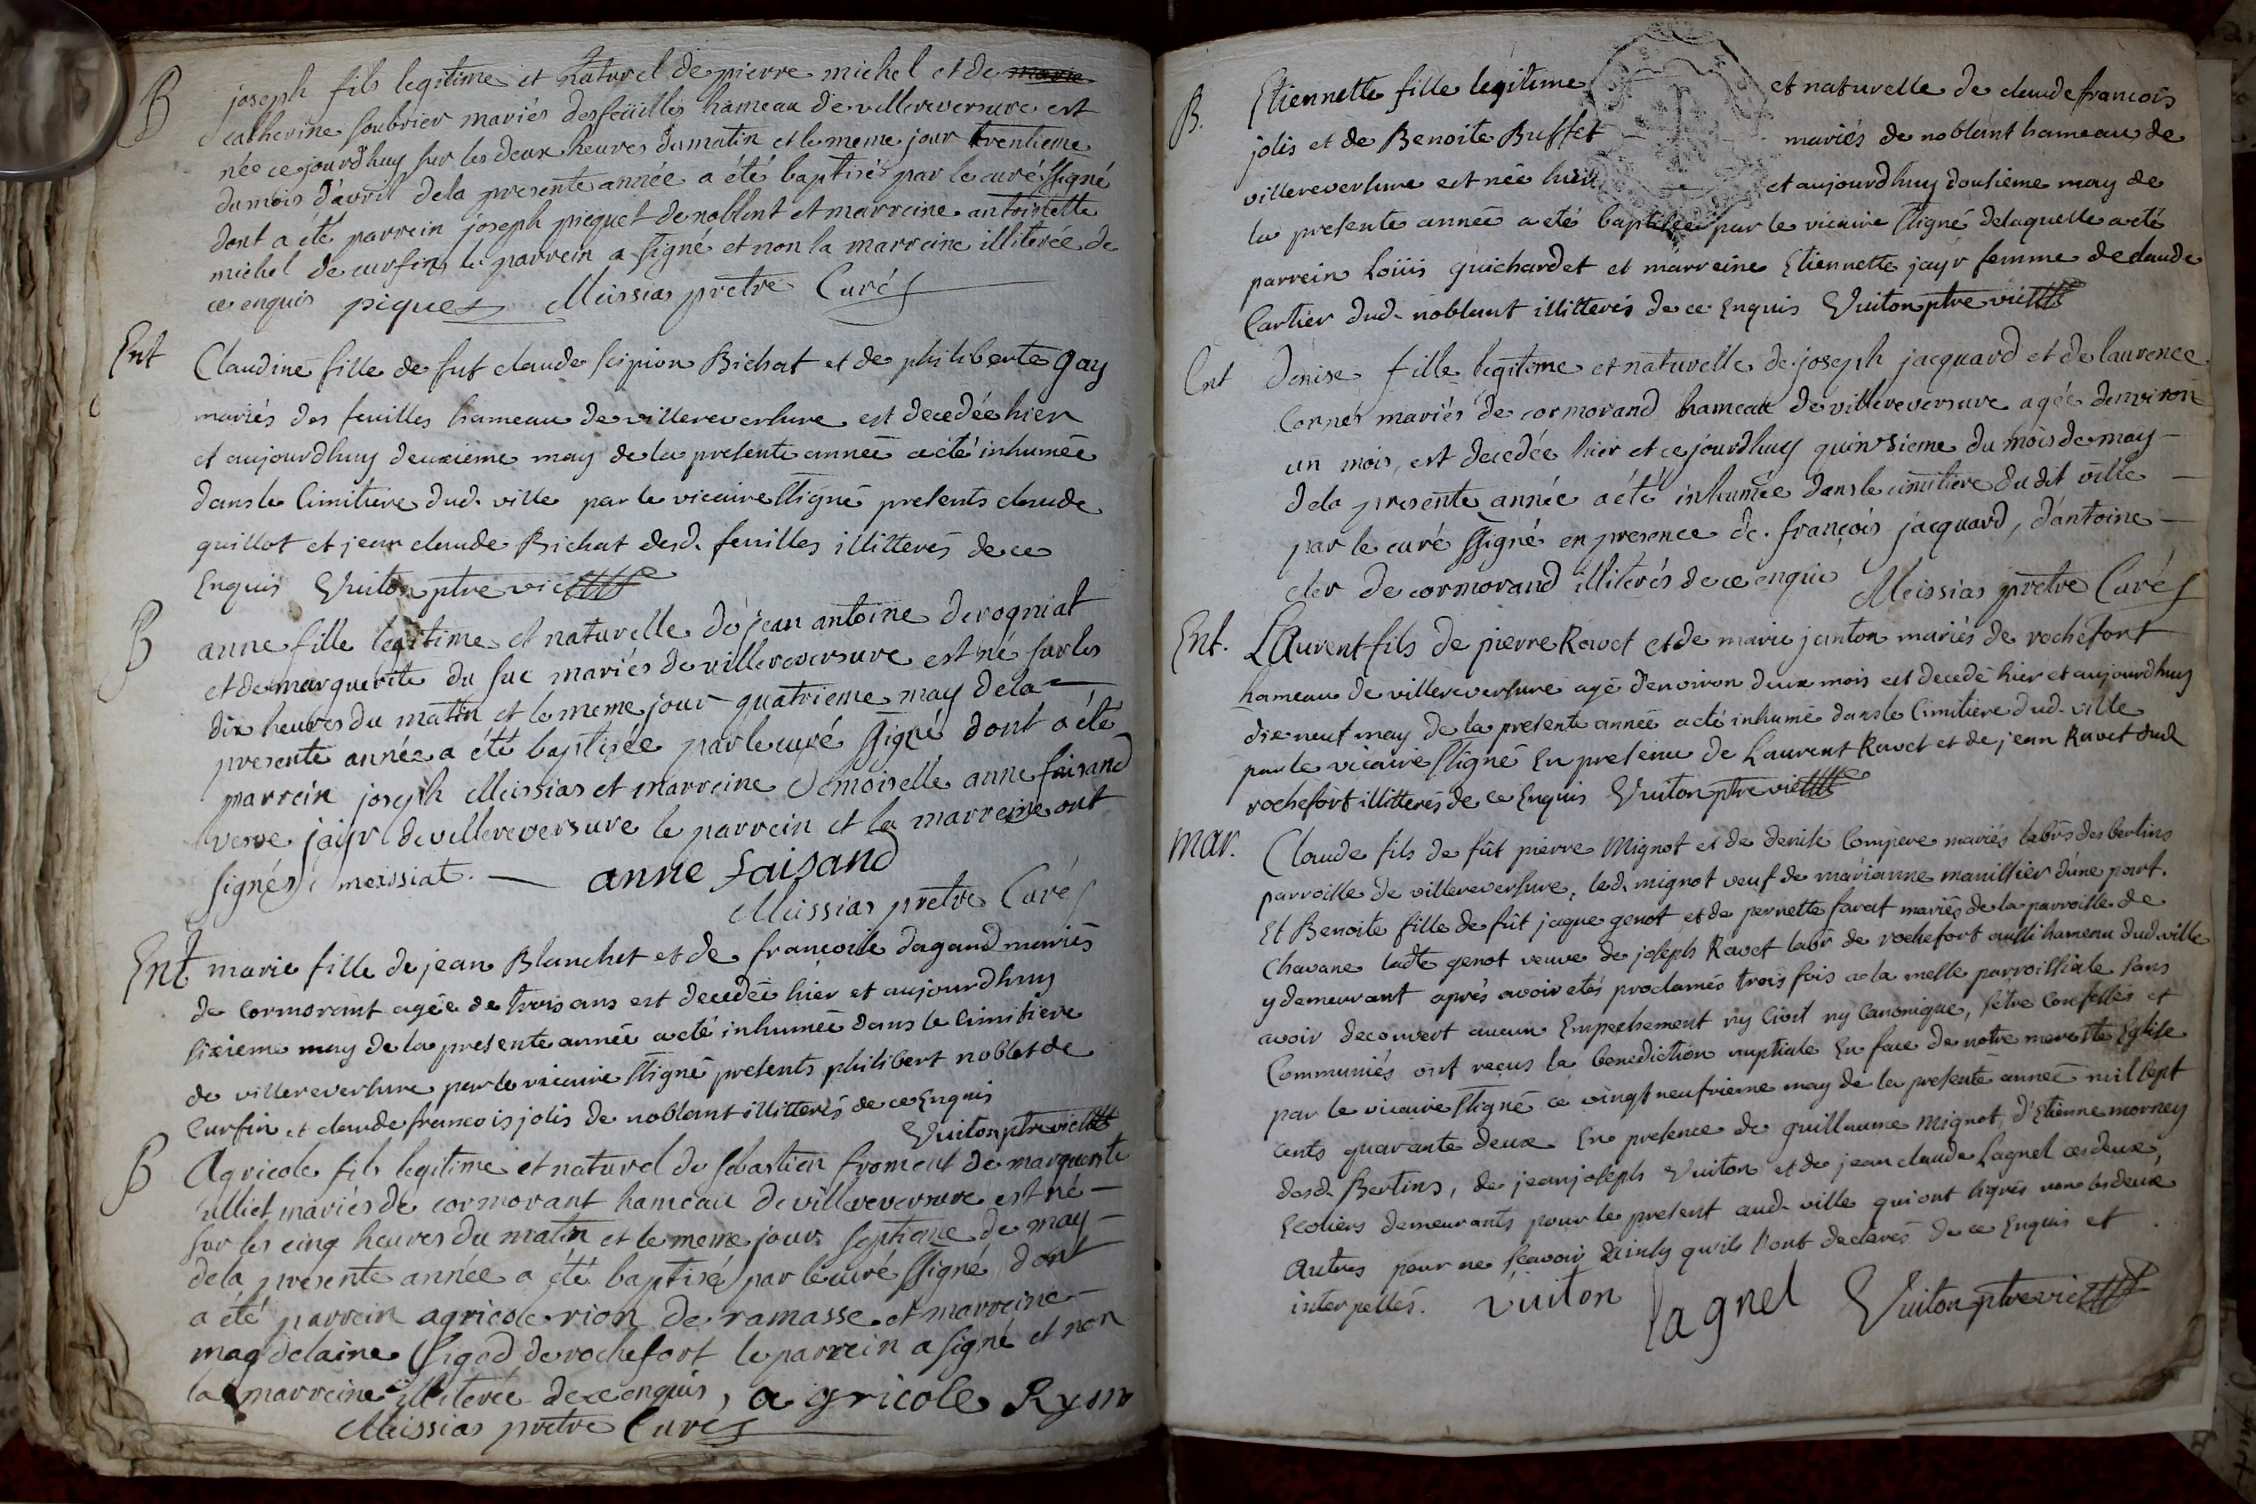 B
joseph fils legitime et naturel de pierre michel et de marie
catherine soubrier mariés des feüilles hameau de villereversure est
née ce jourd'huy sur les deux heures du matin et le meme jour trentieme
du mois d'avril de la presente année a été baptisé par le curé ssigné
dont a été parrein joseph piequet de noblent et marreine antoinette
michel de curfin, le parrein a signé et non la marreine illiterée de
ce enquis piquet Meissias pretre Curé
Ent
Claudine fille de fut claude scipion Bichat et de philiberte gay
mariés des feuilles hameau de villereversure est decedée hier
et aujourdhuy deuxième may de la presente année a été inhumée
dans le Cimitiere dud. ville par le vicaire ssigné presents claude
guillot et jean claude Bichat desd. feuilles illitterés de ce
Enquis Vuiton ptre vic
B
anne fille legitime et naturelle de jean antoine derogniat
et de marguerite du suc mariés de villereversure est né sur les
dix heures du matin et le meme jour quatrieme may de la
presente année a été baptisée par le curé ssigné dont a été
parrein joseph Meissias et marreine demoiselle anne faisand
veuve jayr de villereversure le parrein et la marreine ont
signés meissiat. anne faisand
Meissias pretre Curé
Ent
marie fille de jean Blanchet et de francoise dagand mariés
de cormorant agée de trois ans est decedée hier et aujourdhuy
sixieme may de la presente année a été inhumée dans le Cimitiere
de villereversure par le vicaire ssigné presents philibert noblet de
Curfin et claude francois jolis de noblant illitterés de ce Enquis
Vuiton ptre vic
B
Agricole fils legitime et naturel de sebastien froment de marguerite
julliet mariés de cormorant hameau de villereversure est né
sur les cinq heures du matin et le meme jour septieme de may
de la presente année a été baptisé par le curé ssigné dont
a été parrein agricole rion de ramasse et marreine
magdelaine sigod de rochefort le parrein a signé et non
la marreine illiterée de ce enquis, agricole Ryon
Meissias pretre Curé
B.
Etiennette fille legitime et naturelle de claude francois
jolis et de Benoite Buffet mariés de noblant hameau de
villereversure est née hier et aujourdhuy dousieme may de
la presente année a etés baptisée par le vicaire ssigné de laquelle a eté
parrein Loüis guichardet et marreine Etiennette jayr femme de claude
Cartier dud. noblant illitterés de ce Enquis Vuiton ptre vic
Ent
denise fille legitime et naturelle de joseph jacquard et de laurence
Cornés mariés de cormorand hameau de villereversure agée denviron
un mois, est decedée hier et ce jourdhuy quinsieme du mois de may
de la presente année a été inhumée dans le cimitiere du dit ville
par le curé ssigné en presence de françois jacquard, d'antoine
cler de cormorand illiterés de ce enquis Meissias pretre Curé
Ent.
Laurent fils de pierre Ravet et de marie janton mariés de rochefort
hameau de villereversure agé d'environ deux mois est decedé hier et aujourdhuy
dixneuf may de la presente année a eté inhumé dans le Cimitiere dud. ville
par le vicaire ssigné En presence de Laurent Ravet et de jean Ravet dud.
rochefort illitterés de ce Enquis Vuiton ptre vic
Mar.
Claude fils de fût pierre Mignot et de denise Compere mariés labrs des bertins
parroisse de villereversure, led. mignot veuf de marianne manillier d'une part.
Et Benoite fille de fût jaque genot et de pernette farat mariés de la parroisse de
Chavane ladte genot veuve de joseph Ravet labr de rochefort aussi hameau dud. ville
y demeurant aprés avoir etés proclamés trois fois a la messe parroissiale sans
avoir decouvert aucun Empechement ny Civil ny Canonique, s'être confessés et
Communiés ont reçus la benediction nuptiale En face de notre mere Ste Eglise
par le vicaire ssigné ce vingt neufvieme may de la presente année mil sept
cents quarante deux En presence de guillaume Mignot, d'Etienne morney
desd. Bertins, de jean joseph Vuiton et de jean claude Lagnel ces deux
Ecoliers demeurants pour le present aud. ville qui ont signés non les deux
autres pour ne sçavoir ainsy qu'ils l'ont declarés de ce Enquis et
interpellés. vuiton lagnel Vuiton ptre vic